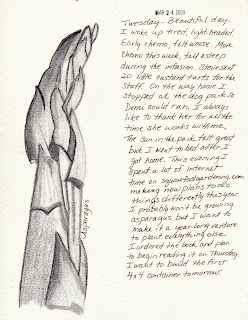 MAR 24 2009
Tuesday - Beautiful day.
I woke up tired, light-headed.
Early chemo, felt worse. More
chemo this week, fell asleep
during the infusion. Steve sent
20 little custard tarts for the
staff. On the way home I
stopped at the dog park so
Demi could run. I always
like to thank her for all the
time she works with me.
The sun in the park felt great
but I went to bed after I
got home. This evening I
spent a lot of internet
time on squarefootgardening.com
making new plans to do
things differently this year.
I probably won't be growing
asparagus but I want to
make it a year long venture
to plant everything else.
I ordered the book and plan
to begin reading it on Thursday.
I want to build the first
4x4 container tomorrow.
asparagus